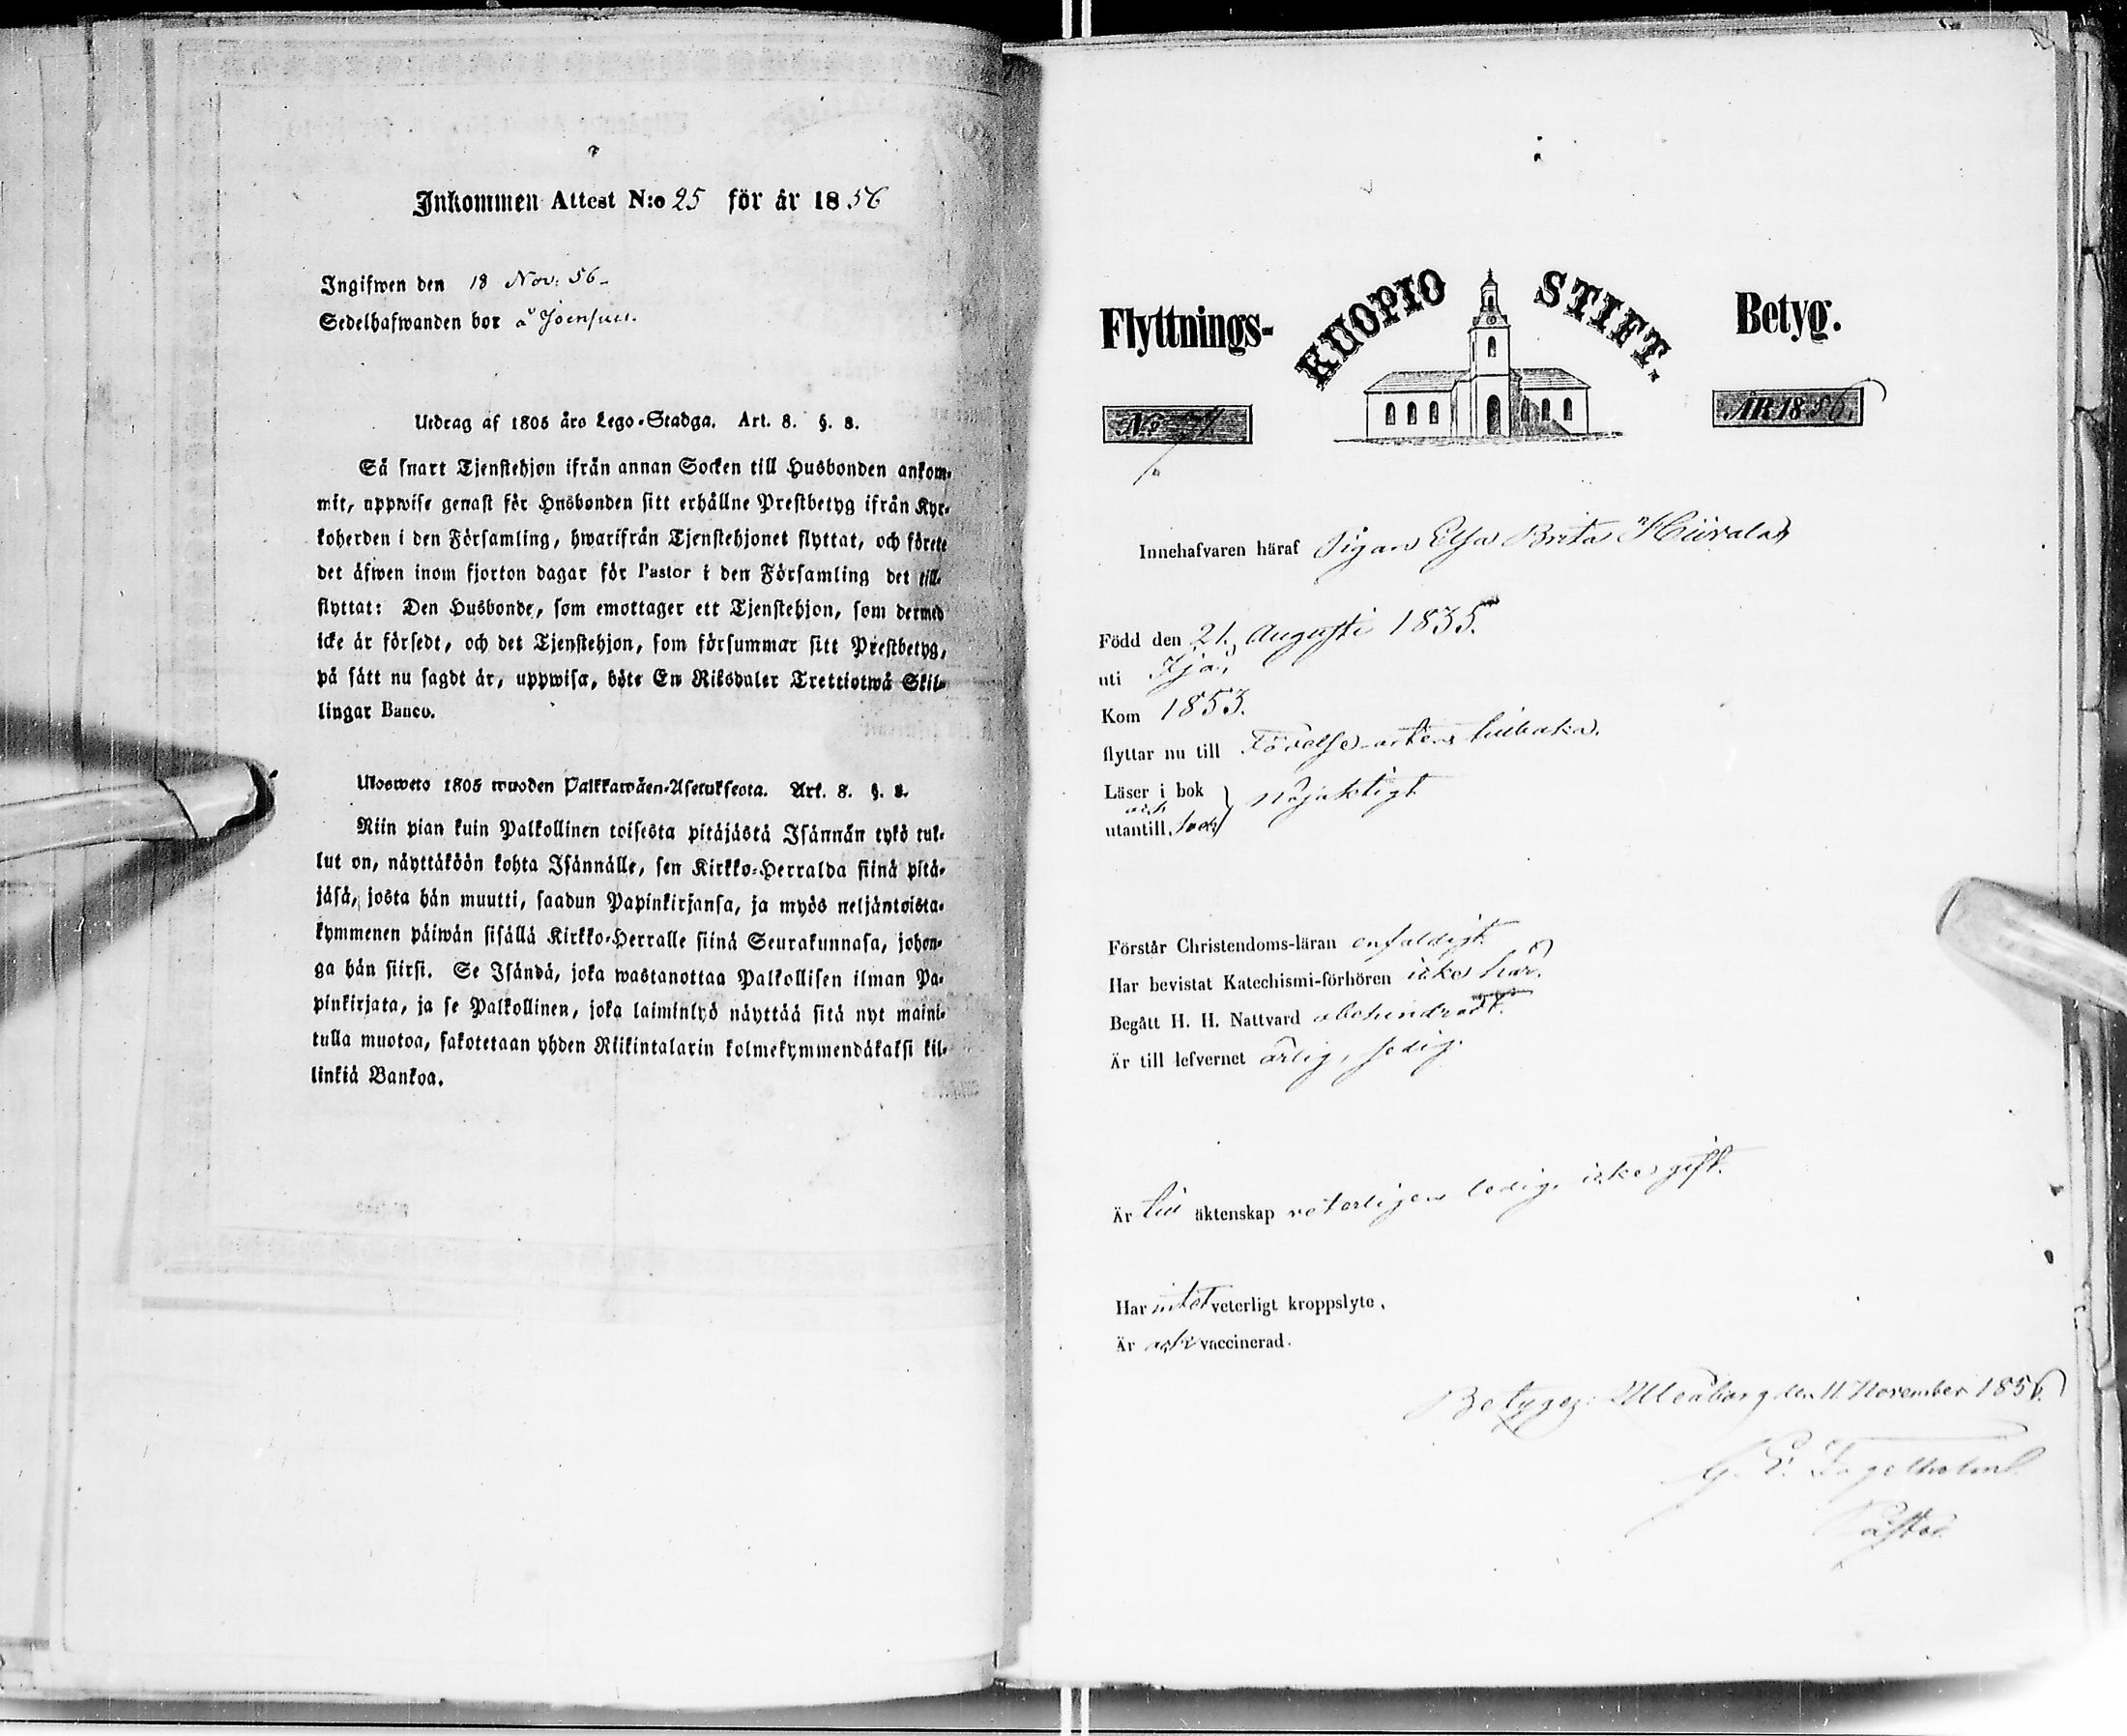 Inkommen Attest N:o 25 för år 1856
Ingifwen den 18 Nov. 56-
Sedelhafwanden bor å Joensuu.
Utdrag af 1805 års Lego-Stadga. Art. 8. §. 8.
Så snart Tjenstehjon ifrån annan Socken till Husbonden ankom-
mit, uppwise genast för Husbonden sitt erhållne Prestbetyg ifrån Kyr-
koherden i den Församling, hwarifrån Tjenstehjonet flyttat, och förete
det äfwen inom fjorton dagar för Pastor i den Församling det till-
flyttat: Den Husbonde, som emottager ett Tjenstehjon, som dermed
icke är försedt, och det Tjenstehjon, som försummar sitt Prestbetyg,
på sätt nu sagdt är, uppwisa, böte En Riksdaler Trettiotwå Skil-
lingar Banco.
Ulosweto 1805 wuoden Palkkawäen-Asetuksesta. Art. 8. §. 8.
Niin pian kuin Palkollinen toisesta pitäjästä Isännän tykö tul-
lut on, näyttäköön kohta Isännälle, sen Kirkko-Herralda siinä pitä-
jäsä, josta hän muutti, saadun Papinkirjansa, ja myös neljäntoista-
kymmenen päiwän sisällä Kirkko-Herralle siinä Seurakunnasa, johon-
ga hän siirsi. Se Isändä, joka wastanottaa Palkollisen ilman Pa-
pinkirjata, ja se Palkollinen, joka laiminlyö näyttää sitä nyt maini-
tulla muotoa, sakotetaan yhden Riikintalarin kolmekymmendäkaksi kil-
linkiä Bankoa.
Flyttnings- KUOPIO STIFT. Betyg.
N:o ÅR 1856.
Innehafvaren häraf Pigan Elsa Brita Hiivala
Född den 21. Augusti 1835.
uti Ijo,
Kom 1853.
flyttar nu till Födelse-orten tillbaka.
Läser i bok
och nöjaktigt
utantill
Förstår Christendoms-läran enfaldigt.
Har bevistat Katechismi-förhören icke här.
Begått H. H. Nattvard obehindradt.
Är till lefvernet ärlig, sedig.
Är till äktenskap veterligen ledig, icke gift.
Har intet veterligt kroppslyte.
Är och vaccinerad.
Betygar Uleåborg den 11. November 1856.
G. E. Fogelholm
Pastor